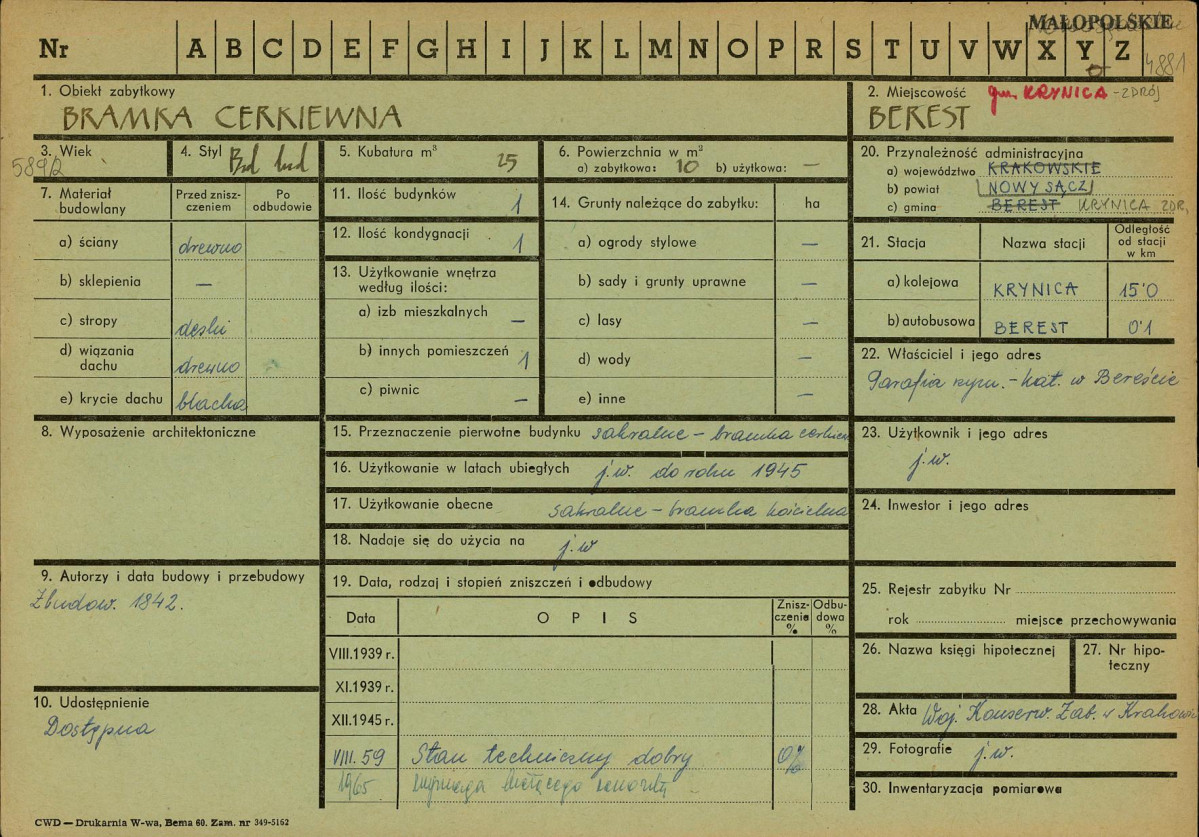 MAŁOPOLSKIE
Nr A B C D E F G H I J K L M N O P R S T U V W X Y Z
4881
1. Obiekt zabytkowy
BRAMKA CERKIEWNA
2. Miejscowość gm. KRYNICA - ZDRÓJ
BEREST
3. Wiek
589/2
4. Styl Bd lud
5. Kubatura m³
25
6. Powierzchnia w m²
a) zabytkowa: 10 b) użytkowa: —
7. Materiał budowlany
Przed zniszczeniem
Po odbudowie
a) ściany drewno
b) sklepienia —
c) stropy deski
d) wiązania dachu drewno
e) krycie dachu blacha
8. Wyposażenie architektoniczne
9. Autorzy i data budowy i przebudowy
Zbudow. 1842.
10. Udostępnienie
Dostępna
11. Ilość budynków 1
12. Ilość kondygnacji 1
13. Użytkowanie wnętrza
według ilości:
a) izb mieszkalnych —
b) innych pomieszczeń 1
c) piwnic —
14. Grunty należące do zabytku: ha
a) ogrody stylowe —
b) sady i grunty uprawne —
c) lasy —
d) wody —
e) inne —
15. Przeznaczenie pierwotne budynku sakralne – bramka cerkiew
16. Użytkowanie w latach ubiegłych j.w. do roku 1945
17. Użytkowanie obecne sakralne – bramka kościelna
18. Nadaje się do użycia na j.w
19. Data, rodzaj i stopień zniszczeń i odbudowy
Data OPIS Zniszczenie % Odbudowa %
VIII.1939 r.
XI.1939 r.
XII.1945 r.
VIII.59 Stan techniczny dobry 0%
1965 wymaga bieżącego remontu
20. Przynależność administracyjna
a) województwo KRAKOWSKIE
b) powiat NOWY SĄCZ
c) gmina BEREST KRYNICA ZDR,
21. Stacja Nazwa stacji Odległość od stacji w km
a) kolejowa KRYNICA 15'0
b) autobusowa BEREST 0'1
22. Właściciel i jego adres
Parafia rzym.-kat. w Bereście
23. Użytkownik i jego adres
j.w.
24. Inwestor i jego adres
25. Rejestr zabytku Nr
rok miejsce przechowywania
26. Nazwa księgi hipotecznej
27. Nr hipoteczny
28. Akta Woj. Konserw. Zab. w Krakowie
29. Fotografie j.w.
30. Inwentaryzacja pomiarowa
CWD — Drukarnia W-wa, Bema 60. Zam. nr 349-5162